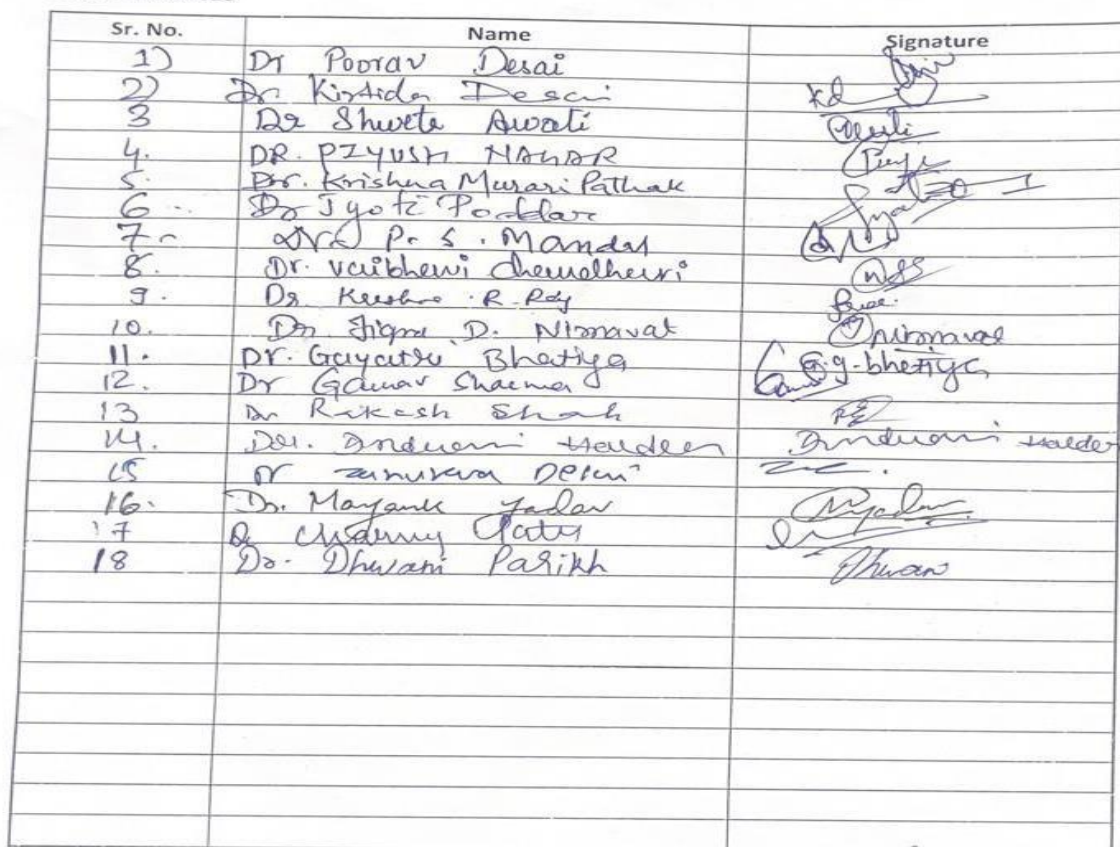 Sr. No. Name Signature
1) Dr Poorav Desai
2) Dr. Kirtida Desai Kd
3 Dr Shweta Awati
4. DR. PIYUSH NAHAR
5. Dr. Krishna Murari Pathak
6 Dr Jyoti Poddar
7 Dr. P. S. Mandal
8. Dr. vaibhavi
9. Dr. R. Roy
10. Dr Jigna D. Nimavat Nimavat
11. Dr. Gayatri Bhatiya G.g-bhatiya
12. Dr Gaurav Sharma
13 Dr Rakesh Shah
14. Dr. Indrani Halder Indrani Halder
15 Dr Desai
16. Dr. Mayank Yadav Myadav
17 Dr
18 Dr. Dhwani Parikh Dhwani